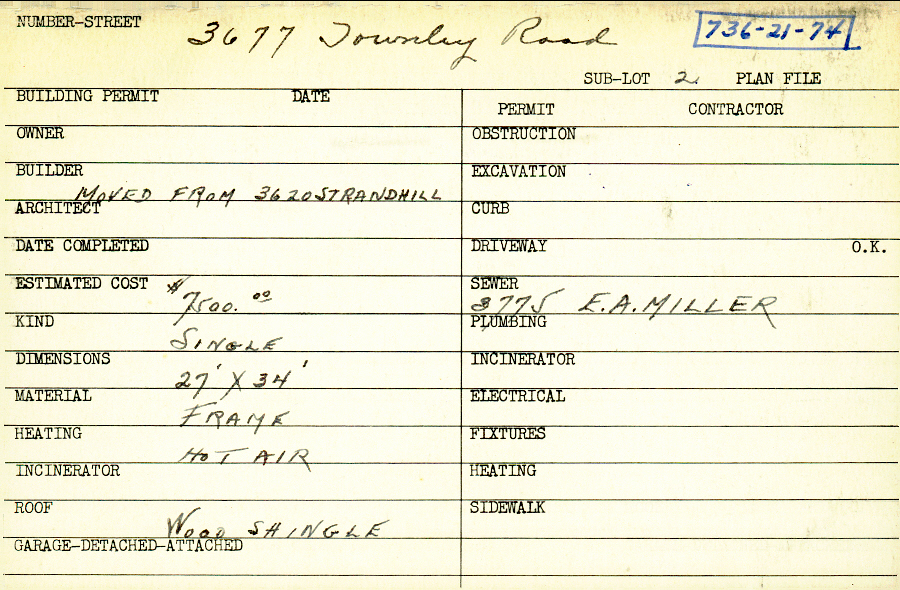 NUMBER-STREET 3677 Townley Road 736-21-74
SUB-LOT 2 PLAN FILE
BUILDING PERMIT DATE
PERMIT CONTRACTOR
OWNER
OBSTRUCTION
BUILDER
EXCAVATION
MOVED FROM 3620 STRANDHILL
ARCHITECT
CURB
DATE COMPLETED
DRIVEWAY O.K.
ESTIMATED COST $7500.00
SEWER
3775 E.A. MILLER
KIND
PLUMBING
SINGLE
DIMENSIONS
INCINERATOR
27' X 34'
MATERIAL
ELECTRICAL
FRAME
HEATING
FIXTURES
HOT AIR
INCINERATOR
HEATING
ROOF
SIDEWALK
WOOD SHINGLE
GARAGE-DETACHED-ATTACHED